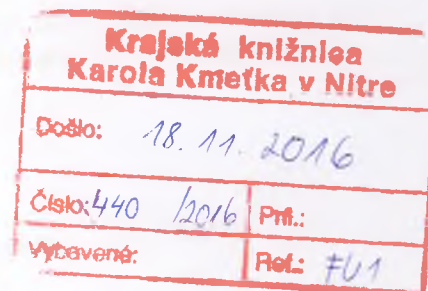 Krajská knižnica
Karola Kmeťka v Nitre
Došlo: 18. 11. 2016
Číslo: 440 /2016 Príl.:
Vybavené: Ref.: FU1